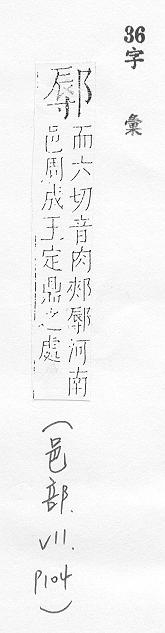 36字彙
鄏
而六切音肉郟鄏河南
邑周成王定鼎之處
(邑部. VII. P104)